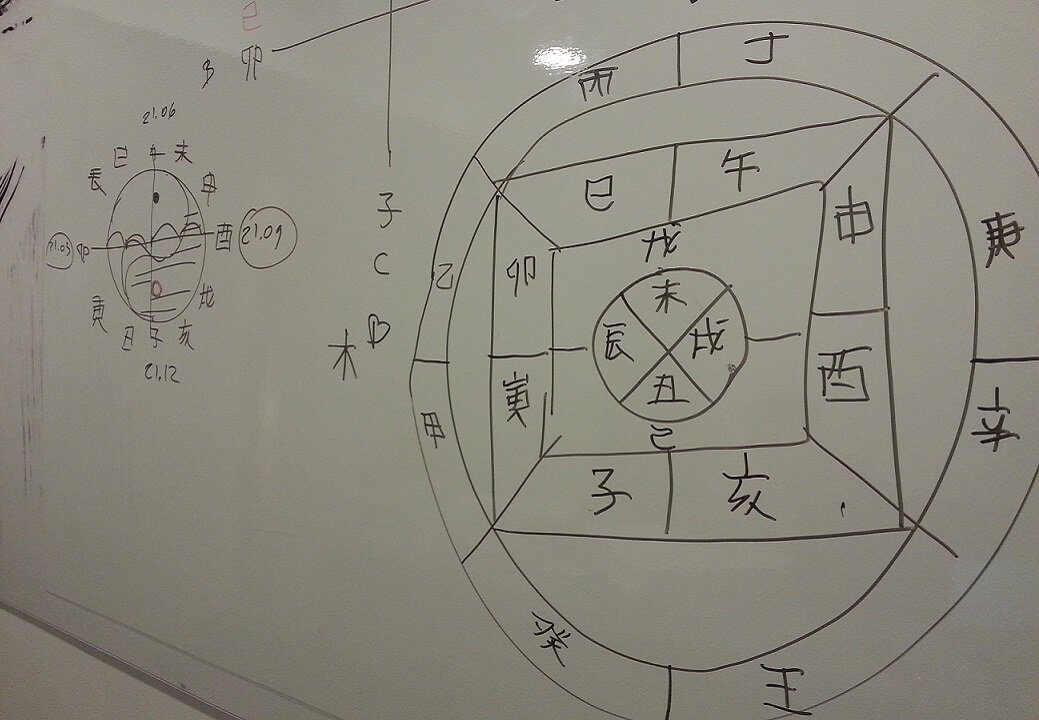 己
B 卯
21.06
巳 午 未
辰 申
21.03 卯 酉 21.09
寅 戌
丑 子 亥
21.12
子
C
木 B
丙 丁
巳 午
申 庚
戊
乙 卯
未
辰 戌
丑
甲 寅
酉 辛
己
子 亥
癸 王